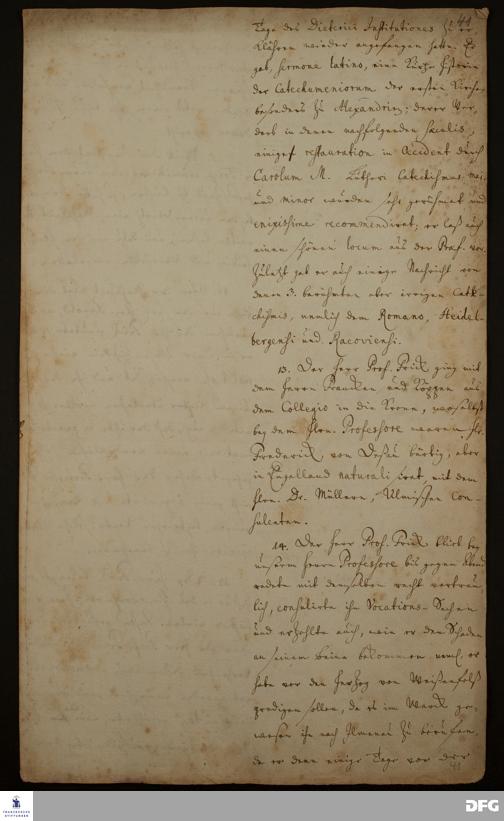 44
Tage des Dieterici Institutiones zu er-
klähren wieder angefangen hatte. Er
gab, sermone latino, eine kurze Historie
der Catechumeniorum der ersten Kirchen
besonders zu Alexandrien; derer Ver-
derb in denen nachfolgenden saeculis,
einiger restauration in Occident durch
Carolum M. Lutheri Catechismus maj.
und minor wurden sehr gerühmet und
enixissime recommendirat; er laß auch
einen schönen locum aus der Praef. vor.
Zuletzt gab er auch einige Nachricht von
denen 3. berühmten aber irrigen Cate-
chismis, nemlich dem Romano, Heidel-
bergensi und Racoviensi.
13. Der Herr Prof. Frick ging mit
dem Herrn Francken und Köppen aus
dem Collegio in die Krone, woselbst
bey dem Hrn. Professore waren, Hr.
Frederick von Deßau bürtig, aber
in Engelland naturalisirat, mit dem
Hrn. Dr. Müllern, Ulmischen Con-
sulenten.
14. Der Herr Prof. Frick blieb bey
unserm Herrn Professore bis gegen Abend
redete mit demselben recht vertrau-
lich, consulirte ihn Vocations-Sachen
und erzehlte auch, wie er den Schaden
an seinem Beine bekommen nemlich, er
habe vor den Herzog von Weißenfelß
predigen sollen, da es im Werck ge-
wesen ihn nach Ilmenau zu beruffen.
da er denn einige Tage vor der
FRANCKESCHE
STIFTUNGEN
DFG